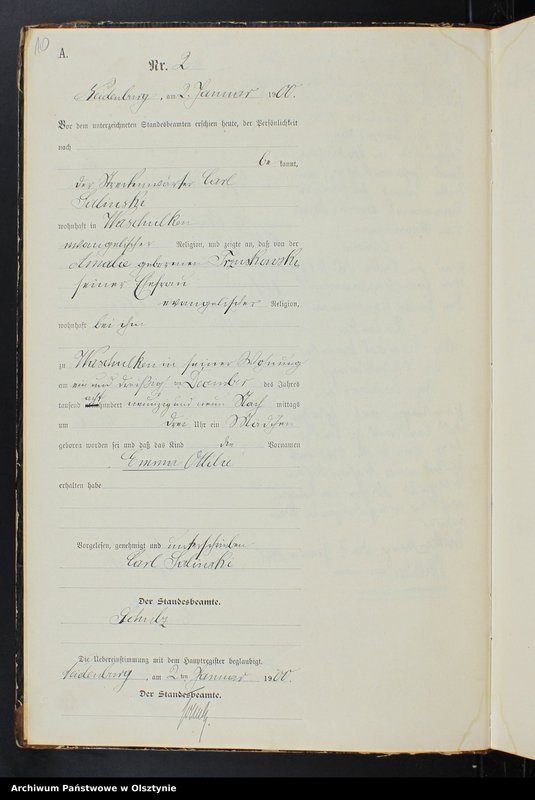 10
A.
Nr. 2
Neidenburg, am 2. Januar 1900.
Vor dem unterzeichneten Standesbeamten erschien heute, der Persönlichkeit
nach
be kannt,
der Streckenwärter Carl
Salinski
wohnhaft in Waschulken
evangelischer Religion, und zeigte an, daß von der
Amalie geborenen
seiner Ehefrau
evangelischer Religion,
wohnhaft bei ihm
zu Waschulken in seiner Wohnung
am ein und dreißigsten December des Jahres
tausend acht hundert neunzig und neun Nach mittags
um drei Uhr ein Mädchen
geboren worden sei und daß das Kind die Vornamen
Emma Ottilie
erhalten habe
Vorgelesen, genehmigt und unterschrieben
Carl Salinski
Der Standesbeamte.
Schulz
Die Uebereinstimmung mit dem Hauptregister beglaubigt.
Neidenburg, am 2ten Januar 1900.
Der Standesbeamte.
Schulz
Archiwum Państwowe w Olsztynie